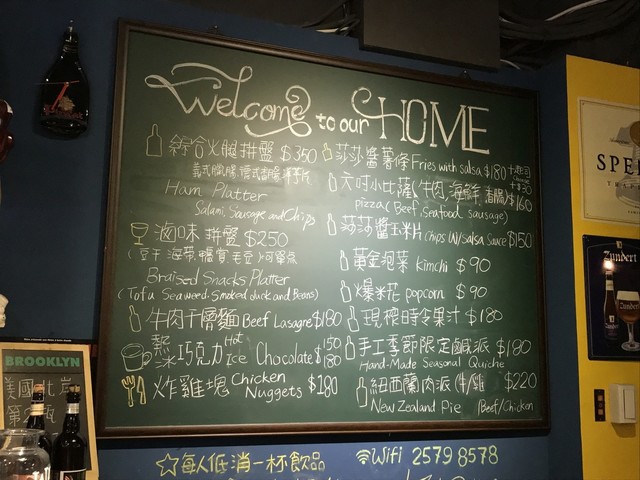 Welcome to our HOME
綜合火腿拼盤 $350
Ham Platter
Salami, Sausage and Chips
滷味拼盤 $250
(豆干 海帶 鴨賞 毛豆) 可單點
Braised Snacks Platter
(Tofu Seaweed. Smoked duck and Beans)
牛肉千層麵 Beef Lasagne $180
熱 Hot $150
冰 巧克力 Ice Chocolate $180
炸雞塊 Chicken Nuggets $180
莎莎醬薯條 Fries with salsa $180 +起司 +$30
六吋小比薩(牛肉,海鮮,香腸) $160
pizza (Beef Seafood sausage)
莎莎醬玉米片 Chips W/ salsa sauce $150
黃金泡菜 kimchi $90
爆米花 popcorn $90
現榨時令果汁 $180
手工季節限定鹹派 $180
Hand-Made Seasonal Quiche
紐西蘭肉派 牛/雞 $220
New Zealand Pie Beef/Chicken
☆每人低消一杯飲品
Wifi 2579 8578
BROOKLYN
美國
SPE
Zundert